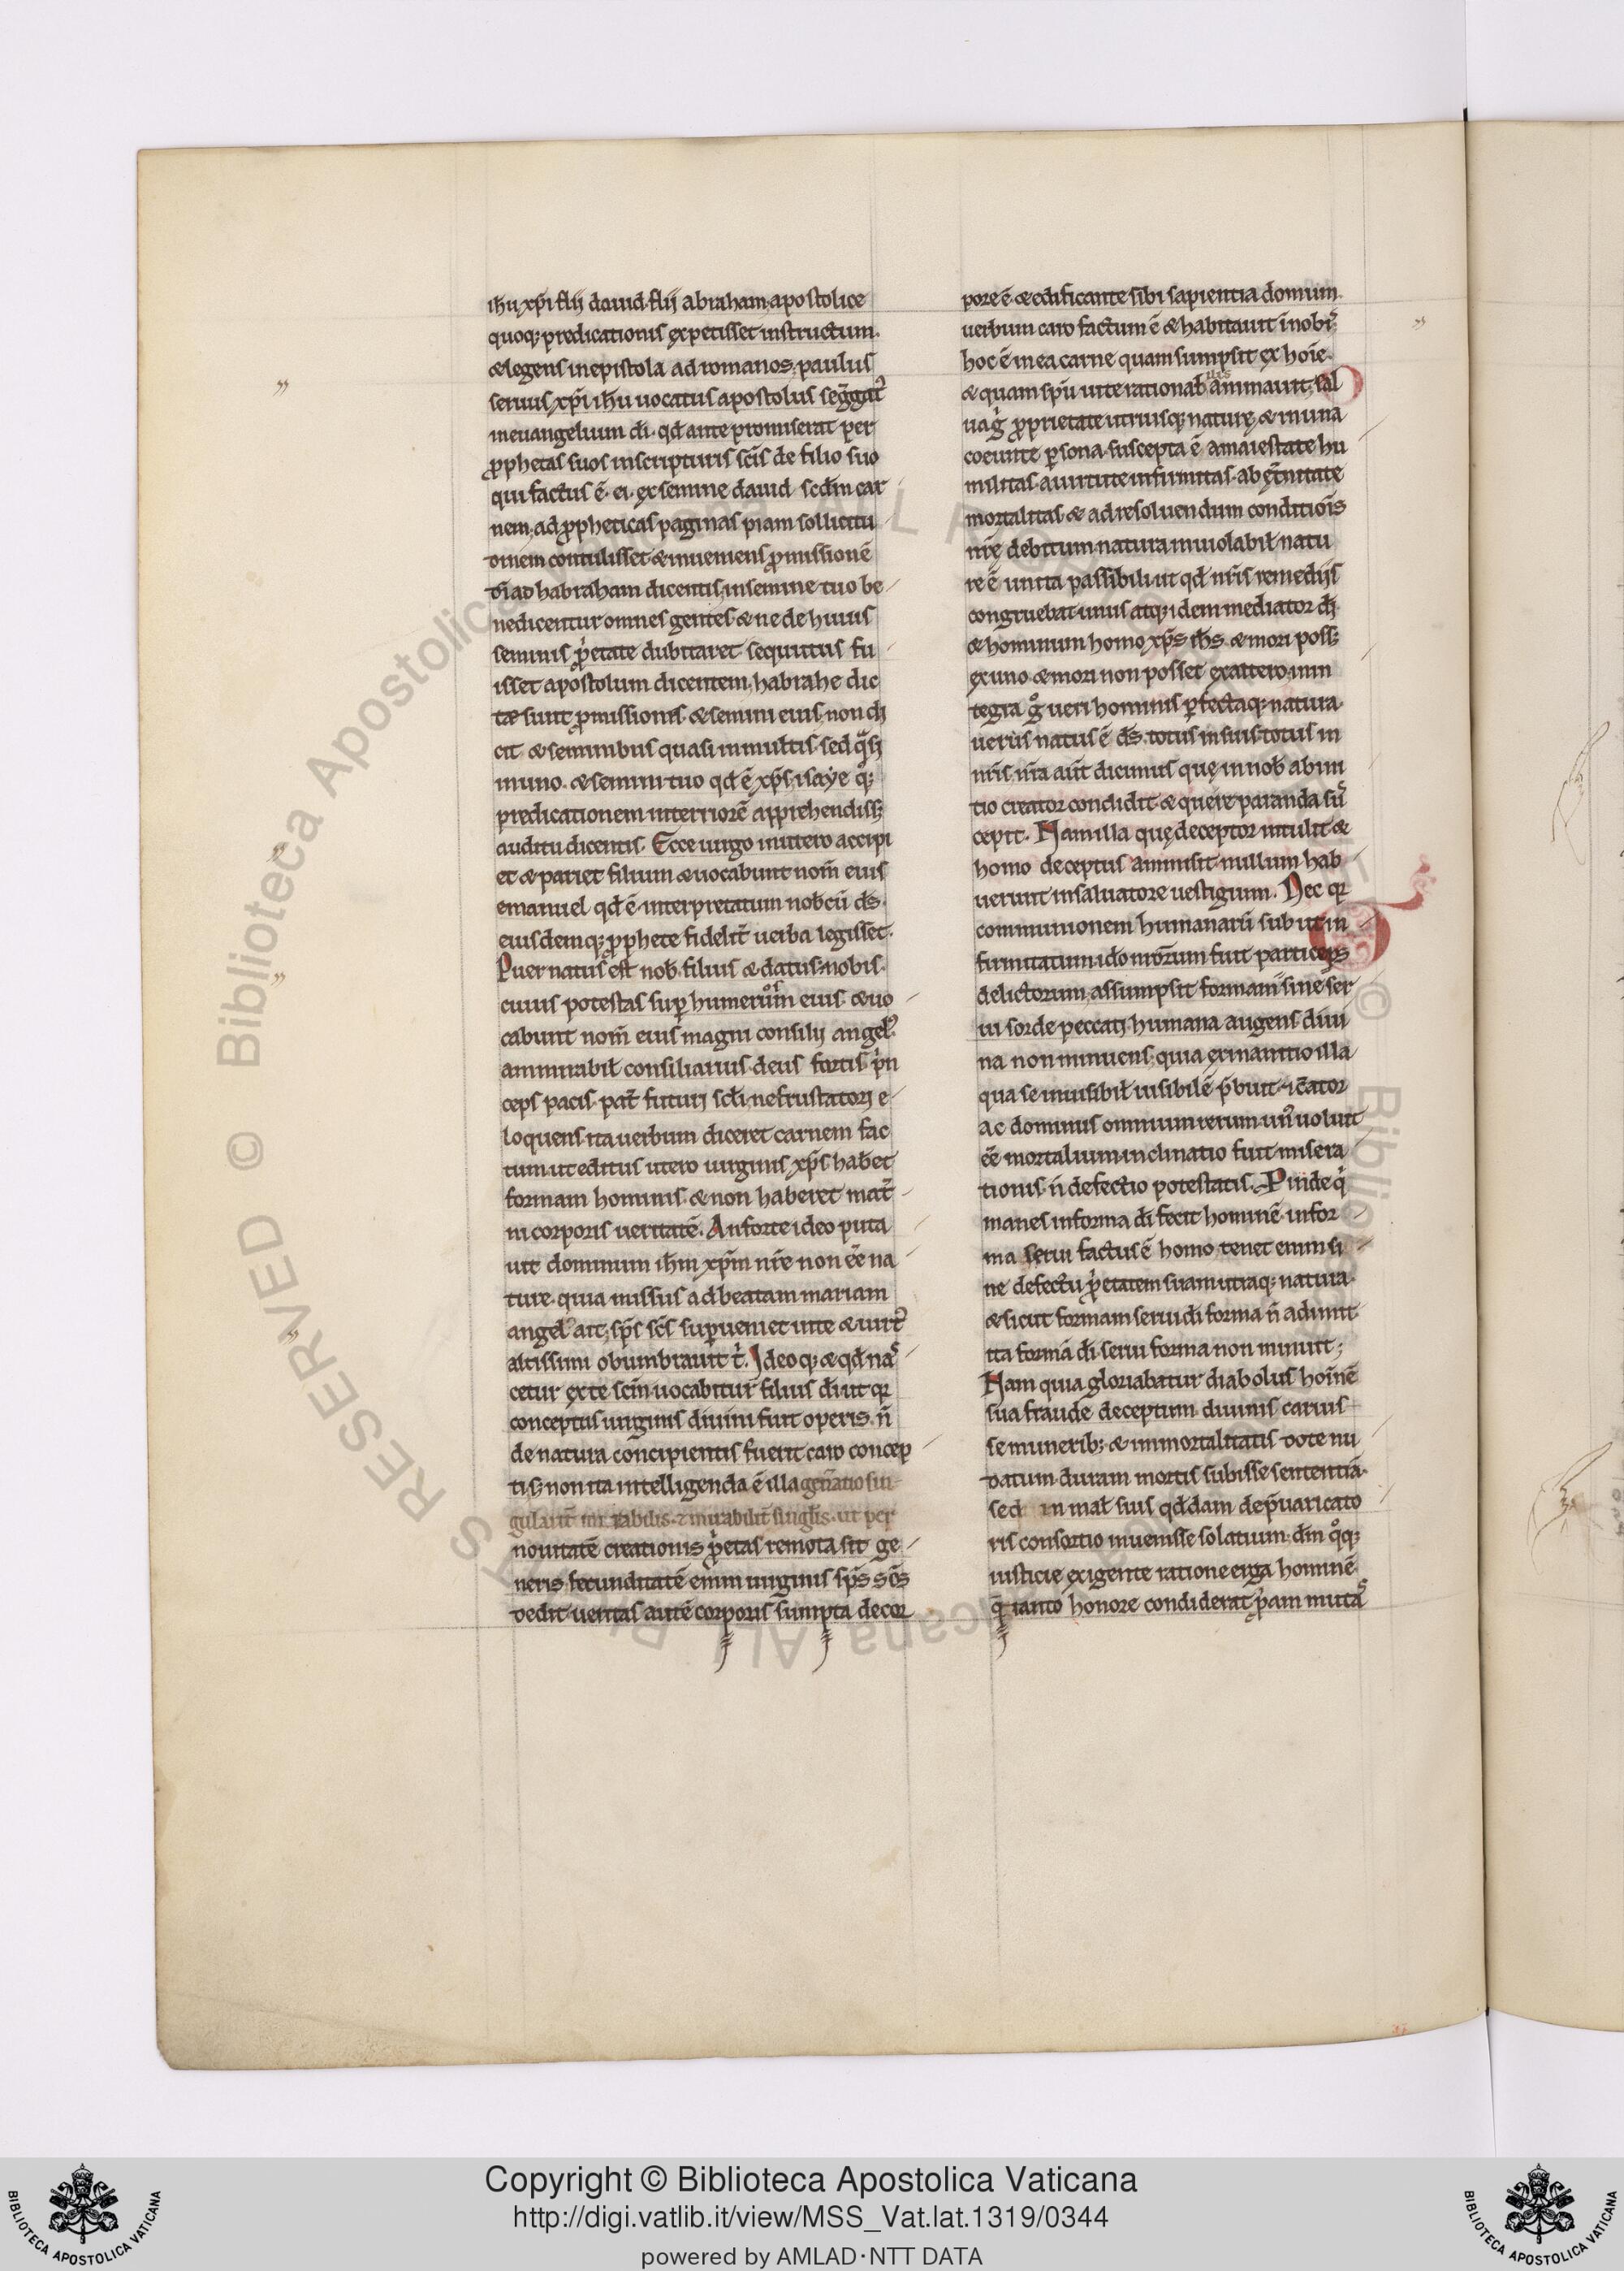 ihu xp̄i filij dauid filij abraham, apostolice
quoq; predicationis expetisset instructum.
& legens in epistola ad romanos: paulus
seruus xp̄i ihu uocatus apostolus segḡatꝰ
in euangelium di. qd̄ ante promiserat per
ꝓphetas suos in scripturis sc̄is de filio suo
qui factus ē. ei. ex semine dauid sedm̄ car
nem, ad ꝓpheticas paginas piam sollicitu
dinem contulisset & inueniens ꝓmissionē
di ad habraham dicentis, in semine tuo be
nedicentur omnes gentes & ne de huius
seminis ꝓ̍etate dubitaret sequutus fu
isset apostolum dicentem, habrahe dic
tæ sunt ꝓmissiones & semini eius. non di
cit & seminibus quasi in multis. sed q̍si
in uno. & semini tuo qd̄ ē xp̄s, isaye q°;
predicationem interiorē apprehendiss;
auditu dicentis. Ecce uirgo in utero accipi
et & pariet filium & uocabunt nom̄ eius
emanuel qd̄ ē interpretatum nob̄cū ds.
eiusdemq; ꝓphete fidelit̄ uerba legisset.
Puer natus est nob̄. filius & datus nobis.
cuius potestas suꝑ humerum eius. & uo
cabunt nom̄ eius magni consilij angel̛.
ammirabil̄ consiliarius. deus fortis p̍n
ceps pacis. pat̄ futuri sc̄li, ne frustatorj e
loquens ita uerbum diceret carnem fac
tum ut editus utero uirginis xp̄s hab̄et
formam hominis. & non haberet mat̄
ni corporis ueritatē. An forte ideo puta
uit dominum ihm xp̄m nr̄e non eē na
ture. quia missus ad beatam mariam
angel̛ ait, sp̄s sc̄s suꝑueniet in te & uirtꝰ
altissimi obumbrauit t̍. Ideoq; & qd̄ nas
cetur ex te sc̄m uocabitur filius di ut qr
conceptus uirginis diuini fuit operis. n̄
de natura concipientis fuerit caro concep
tis; non ita intelligenda ē illa gen̄atio sin
gularit̄ mirabilis. & mirabilit̄ singl̄is. ut per
nouitatē creationis ꝓ̍etas remota sit ge
neris. fecunditatē enim uirginis sp̄s sc̄s
dedit. ueritas autē corporis sumpta de cor
pore ē. & edificante sibi sapientia domum.
uerbum caro factum ē & habitauit in nobi̛.
hoc ē in ea carne quam sumpsit ex hoīe.
& quam sp̄u uite rational̄ animauit, sal
ua g̍ ꝓprietate utriusq; naturę & in una
coeunte ꝑsona. suscepta ē a maiestate hu
militas. a uirtute infirmitas. ab et̄nitate
mortalitas & ad resoluendum conditiōis
nr̄ę debitum natura inuiolabil̄ natu
re ē unita passibili, ut qd̄ nr̄is remedijs
congruebat unus atq; idem mediator di
& hominum homo xp̄s ihs. & mori poss;
ex uno & mori non posset ex altero, in in
tegra g° ueri hominis ꝑfectaq; natura.
uerus natus ē ds. totus in suis totus in
nr̄is. nr̄a aut̄ dicimus quę in nob̄ ab ini
tio creator condidit & que reparanda sus
cepit. Nam illa quę deceptor intulit &
homo deceptus ammisit nullum hab
uerunt in saluatore uestigium. Nec qr
communionem humanarū subiit in
firmitatum. ido nr̄orum fuit particeps
delictorum, assumpsit formam sine ser
ui sorde peccati. humana augens diui
na non minuens. quia exinanitio illa
qua se inuisibil̄ uisibilē p̄buit. & c̄ator
ac dominus omnium rerum unꝰ uoluit
eē mortalium inclinatio fuit misera
tionis. n̄ defectio potestatis. Pinde q̍
manes in forma di fecit hominē. in for
ma serui factus ē homo, tenet enim si
ne defectu ꝓ̍etatem suam utraq; natura.
& sicut formam serui di forma n̄ adimit.
ita formā di serui forma non minuit;
Nam quia gloriabatur diabolus hoīnē
sua fraude deceptum. diuinis caruis
se munerib; & immortalitatis dote nu
datum. duram mortis subisse sententiā.
sed in mal̄ suis qd̄dam dep̄uaricato
ris consortio inuenisse solatium. dm̄ q°q;
iusticie exigente ratione erga hominē
q̄ in tanto honore condiderat, ꝓ̍am mutas
Copyright © Biblioteca Apostolica Vaticana
http://digi.vatlib.it/view/MSS_Vat.lat.1319/0344
powered by AMLAD·NTT DATA